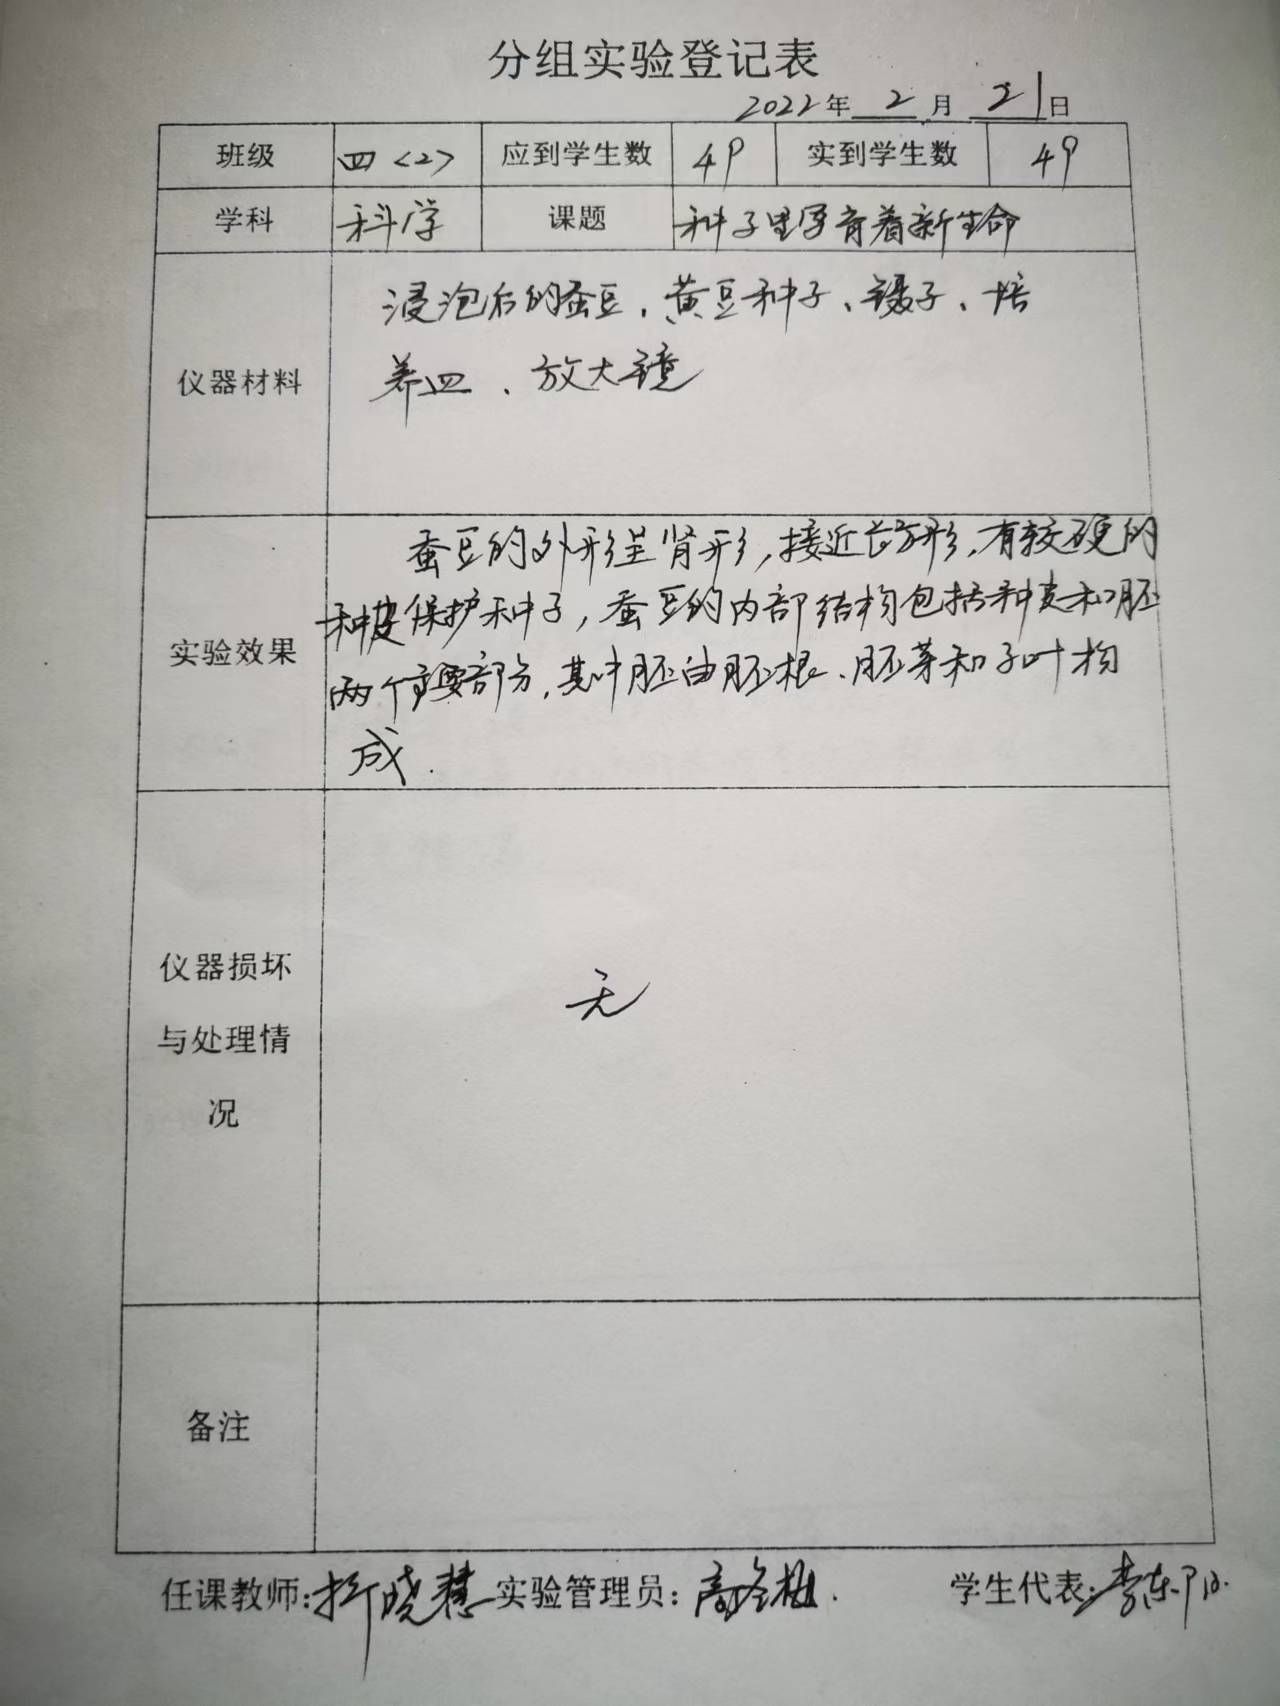 分组实验登记表
2022年 2 月 21日
班级 四<2> 应到学生数 49 实到学生数 49
学科 科学 课题 种子里孕育着新生命
仪器材料
浸泡后的蚕豆、黄豆种子、镊子、培
养皿、放大镜
实验效果
蚕豆的外形呈肾形,接近长方形,有较硬的
种皮保护种子,蚕豆的内部结构包括种皮和胚
两个主要部分,其中胚由胚根、胚芽和子叶构
成.
仪器损坏
与处理情
况
无
备注
任课教师:折晓慧 实验管理员: 学生代表: